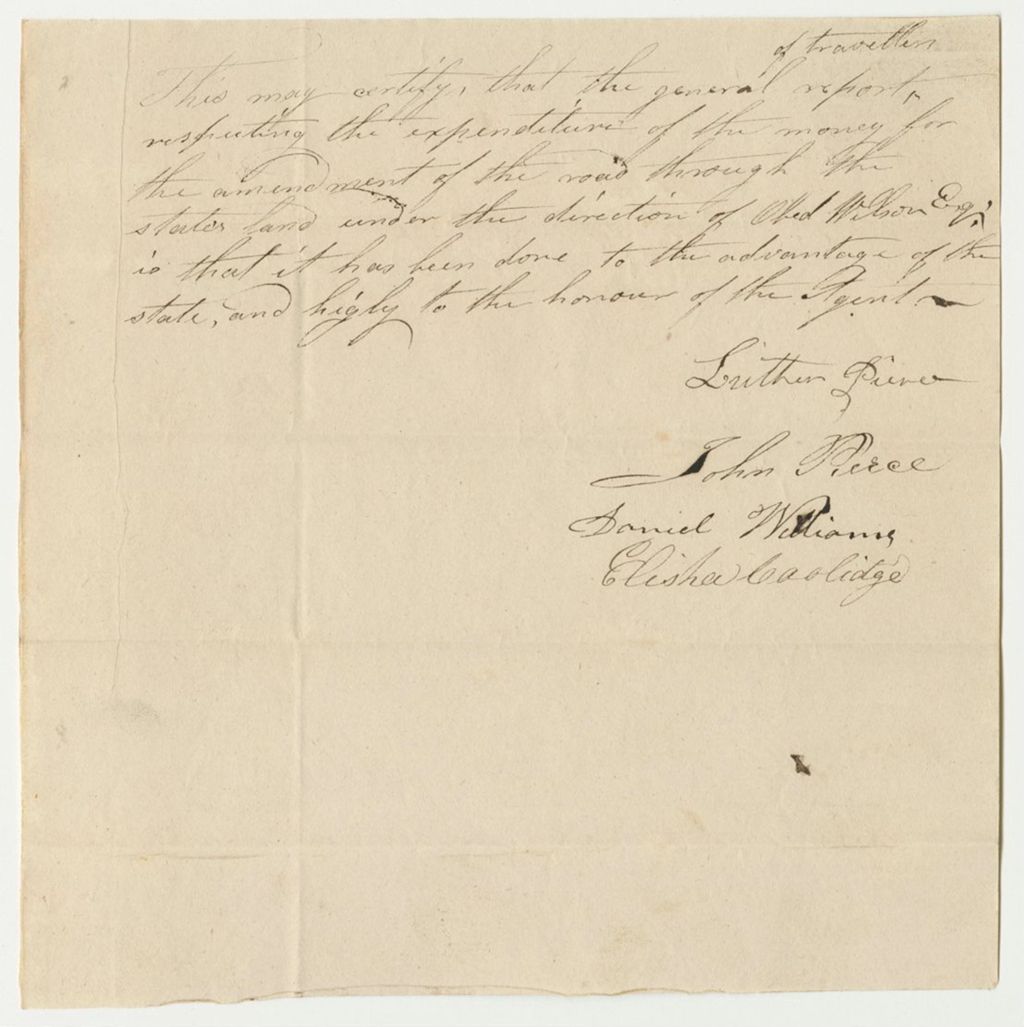 of travellers
This may certify, that the general report,
respecting the expenditure of the money for
the amendment of the road through the
states land under the direction of Obed Wilson Esqr
is that it has been done to the advantage of the
state, and higly to the honour of the Agent
Luther Pierce
John Pierce
Daniel Williams
Elisha Coolidge